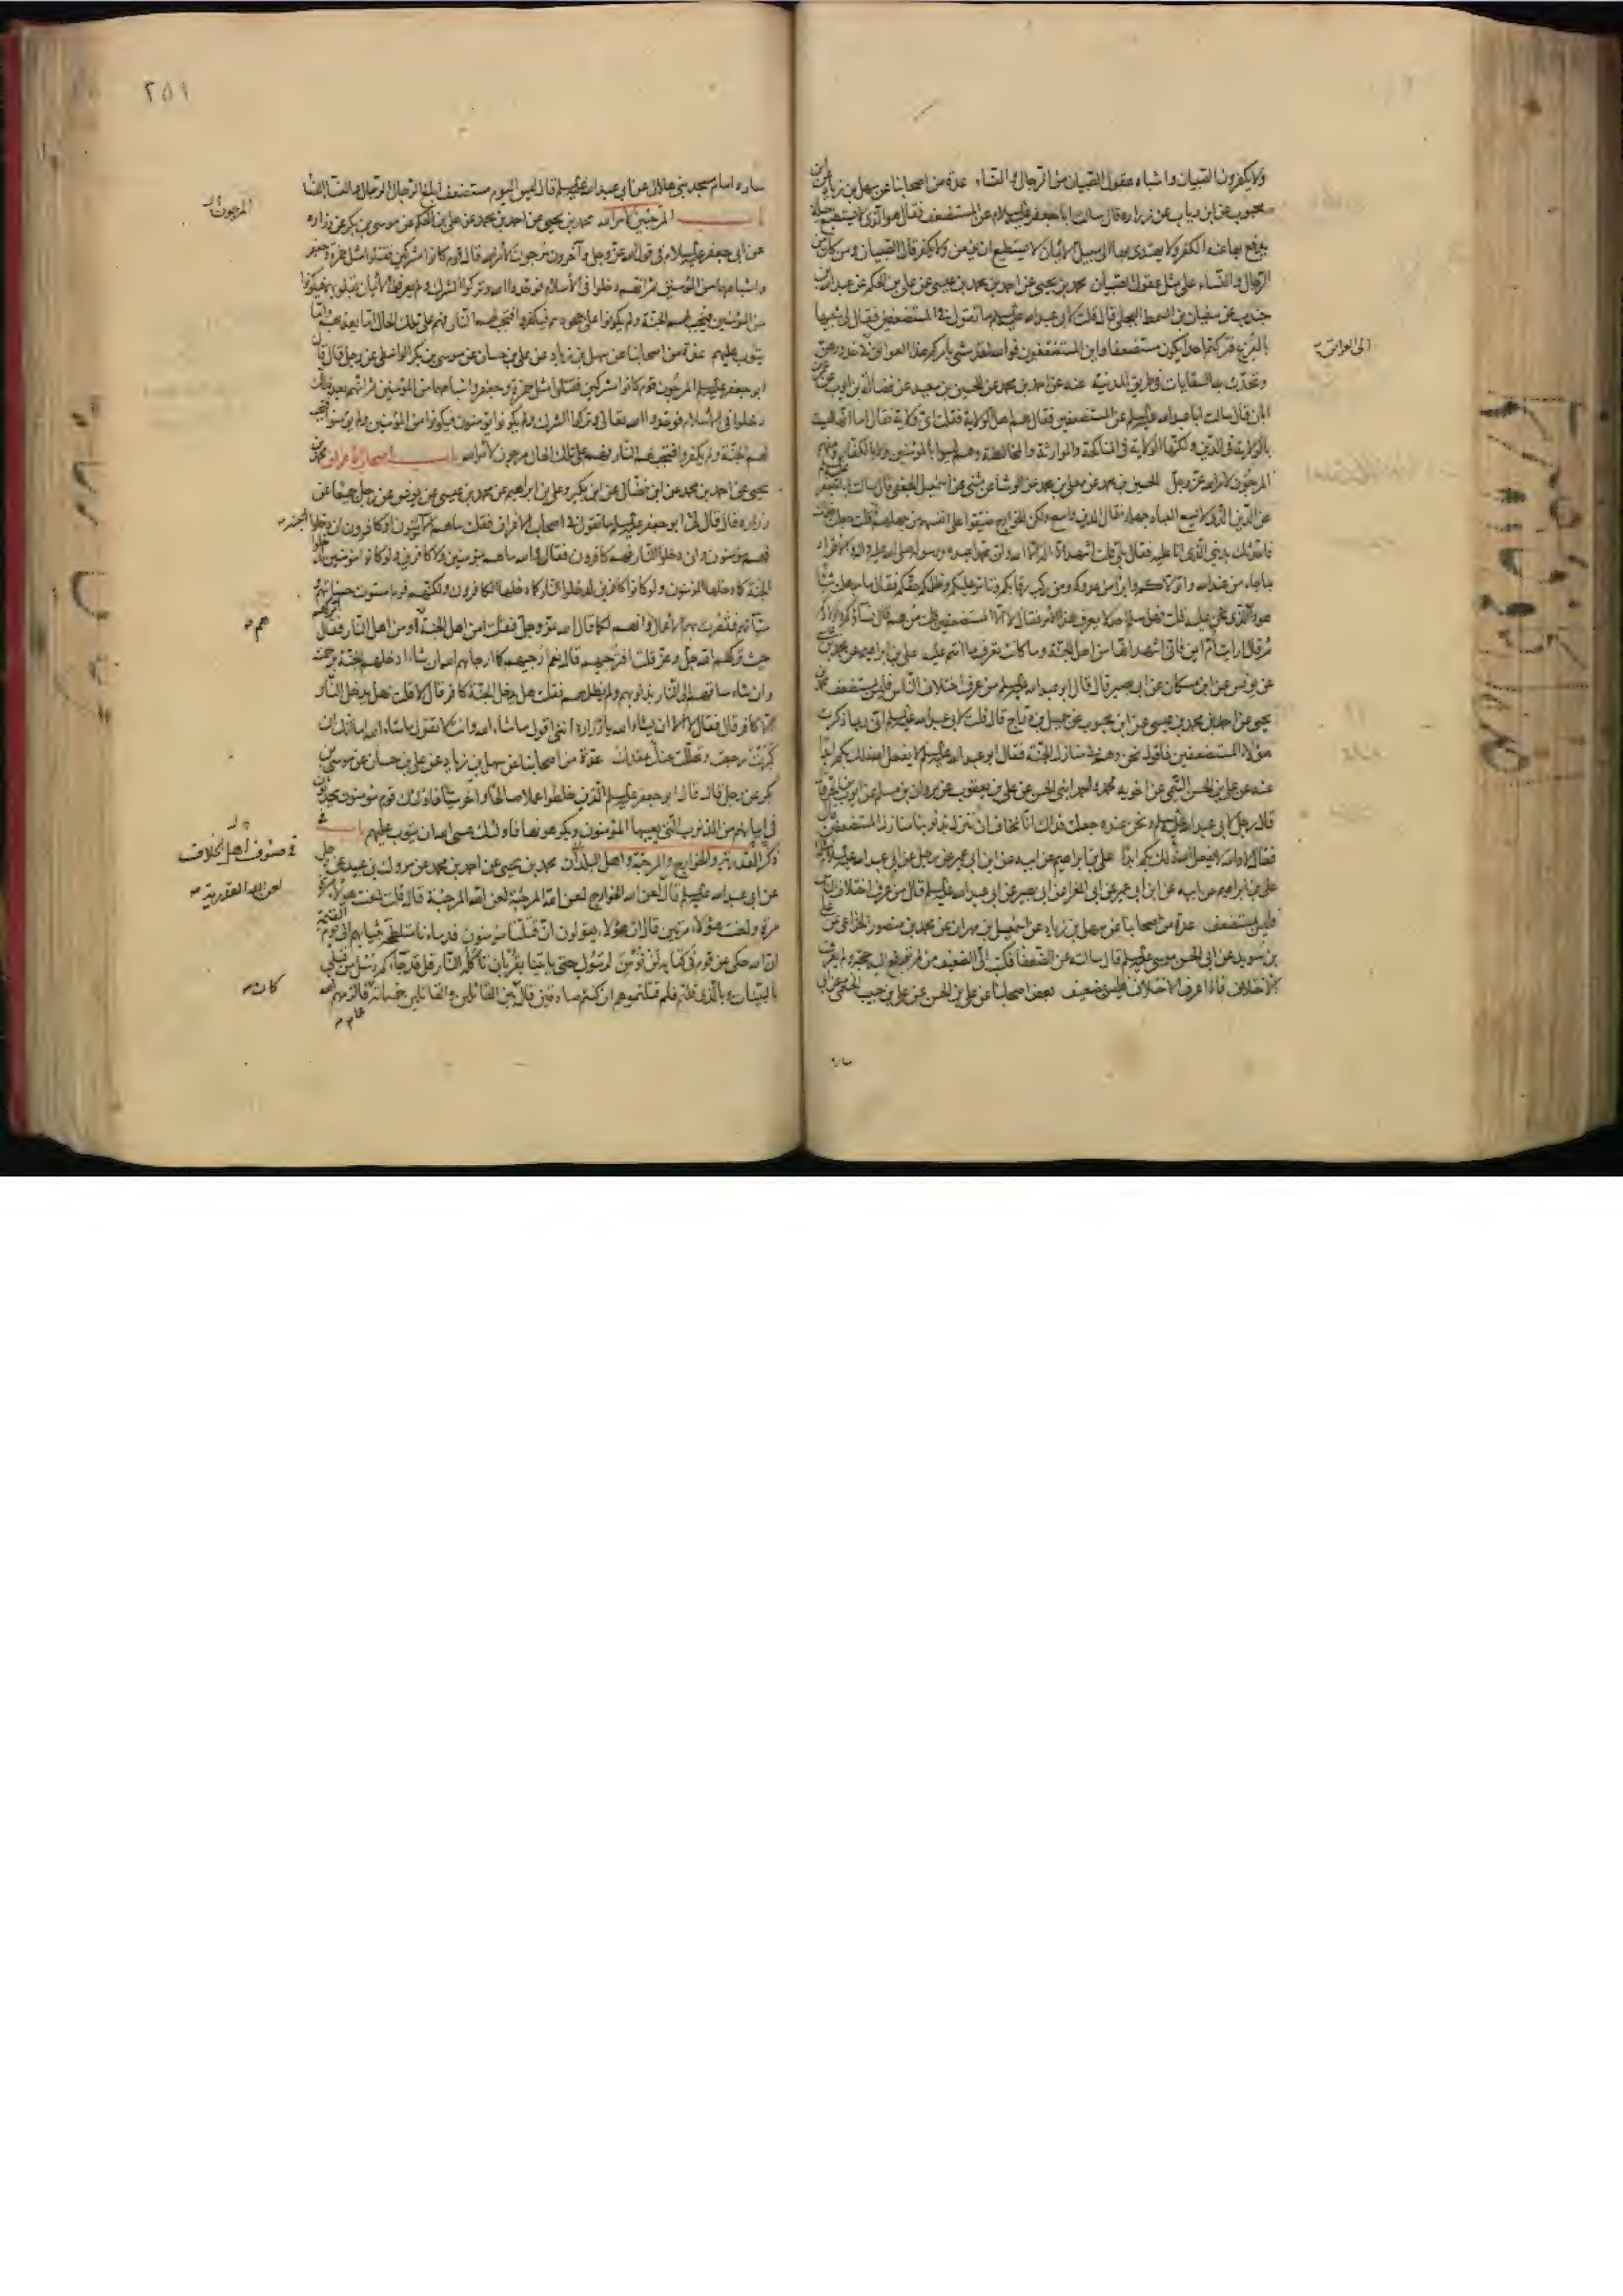 ولا يكفرون الصبيان واشباه عقول الصبيان من الرجال والنساء عدة من اصحابنا عن سهل بن زياد عن ابن
محبوب عن ابن رياب عن زراره قال سالت ابا جعفر عليه السلام عن المستضعف فقال هو الذى لا يستطيع حيلة
يدفع بها عنه الكفر ولا يهتدى بها الى سبيل الايمان لا يستطيع ان يؤمن ولا يكفر قال الصبيان ومن كان من
الرجال والنساء على مثل عقول الصبيان محمد بن يحيى عن احمد بن محمد بن عيسى عن على بن الحكم عن عبد الله بن
جندب عن سفيان بن السمط البجلى قال قلت لابى عبد الله عليه السلم ما تقول فى المستضعفين فقال لى شبيها
بالفزع فتركتم احدا يكون مستضعفا واين المستضعفون فوالله لقد مشى بامركم هذا العواتق فى خدورهن
وتحدث به السقايات فى طريق المدينة عنه عن احمد بن محمد عن الحسين بن سعيد عن فضالة بن ايوب عن عمر بن
ابان قال سالت ابا عبد الله عليه السلم عن المستضعفين فقال هم اهل الولاية فقلت اى ولاية فقال اما انها ليست
بالولاية فى الدين ولكنها الولاية فى المناكحة والموارثة والمخالطة وهم ليسوا بالمؤمنين ولا بالكفار ومنهم
المرجون لامر الله عز وجل الحسين بن محمد عن معلى بن محمد عن الوشا عن مثنى عن اسمعيل الجعفى قال سالت ابا جعفر
عن الدين الذى لا يسع العباد جهله فقال الدين واسع ولكن الخوارج ضيقوا على انفسهم من جهلهم قلت جعلت فداك
فاحدثك بدينى الذى انا عليه فقال بلى قلت اشهد ان لا اله الا الله وان محمدا عبده ورسوله صلى الله عليه واله والاقرار
بما جاء من عند الله واتولاكم وابرا من عدوكم ومن ركب رقابكم وتامر عليكم وظلمكم حقكم فقال ما جهلت شيئا
هو والله الذى نحن عليه قلت فهل سلم احد لا يعرف هذا الامر فقال لا الا المستضعفين قلت من هم قال نساؤكم واولادكم
ثم قال ارايت ام ايمن فانى اشهد انها من اهل الجنة وما كانت تعرف ما انتم عليه على بن ابراهيم عن محمد بن عيسى
عن يونس عن ابن مسكان عن ابى بصير قال قال ابو عبد الله عليه السلم من عرف اختلاف الناس فليس بمستضعف محمد بن
يحيى عن احمد بن محمد بن عيسى عن ابن محبوب عن جميل بن دراج قال قلت لابى عبد الله عليه السلم انى ربما ذكرت
هؤلاء المستضعفين فاقول نحن وهم فى منازل الجنة فقال ابو عبد الله عليه السلم لا يفعل الله ذلك بكم ابدا
عنه عن على بن الحسن التيمى عن اخويه محمد واحمد ابنى الحسن عن على بن يعقوب عن مروان بن مسلم عن ايوب بن الحر قال
قال رجل لابى عبد الله عليه السلم ونحن عنده جعلت فداك انا نخاف ان ننزل بذنوبنا منازل المستضعفين قال
فقال لا والله لا يفعل الله ذلك بكم ابدا على بن ابراهيم عن ابيه عن ابن ابى عمير عن رجل عن ابى عبد الله عليه السلم مثله
على بن ابراهيم عن ابيه عن ابن ابى عمير عن ابى المغرا عن ابى بصير عن ابى عبد الله عليه السلم قال من عرف اختلاف الناس
فليس بمستضعف عدة من اصحابنا عن سهل بن زياد عن اسمعيل بن مهران عن محمد بن منصور الخزاعى عن على
بن سويد عن ابى الحسن موسى عليه السلم قال سالت عن الضعفا فكتب الى الضعيف من لم ترفع اليه حجة ولم يعرف
الاختلاف فاذا عرف الاختلاف فليس بضعيف بعض اصحابنا عن على بن الحسن عن على بن حبيب الخثعمى عن ابى
ساره
الى العواتق
٢٥١
ساره امام مسجد بنى هلال عن ابى عبد الله عليه السلم قال ليس اليوم مستضعف ابلغ الرجال الرجال والنساء النساء
باب المرجئين لامر الله محمد بن يحيى عن احمد بن محمد عن على بن الحكم عن موسى بن بكر عن زراره
عن ابى جعفر عليه السلام فى قول الله عز وجل وآخرون مرجون لامر الله قال قوم كانوا مشركين فقتلوا مثل حمزة وجعفر
واشباههما من المؤمنين ثم انهم دخلوا فى الاسلام فوحدوا الله وتركوا الشرك ولم يعرفوا الايمان بقلوبهم فيكونوا
من المؤمنين فتجب لهم الجنة ولم يكونوا على جحودهم فيكفروا فتجب لهم النار فهم على تلك الحال اما يعذبهم واما
يتوب عليهم عدة من اصحابنا عن سهل بن زياد عن على بن حسان عن موسى بن بكر الواسطى عن رجل قال قال
ابو جعفر عليه السلم المرجون قوم كانوا مشركين فقتلوا مثل حمزة وجعفر واشباههما من المؤمنين ثم انهم بعد ذلك
دخلوا فى الاسلام فوحدوا الله تعالى وتركوا الشرك ولم يكونوا يؤمنون فيكونوا من المؤمنين ولم يؤمنوا فتجب
لهم الجنة ولم يكفروا فتجب لهم النار فهم على تلك الحال مرجون لامر الله باب اصحاب الاعراف محمد بن
يحيى عن احمد بن محمد عن ابن فضال عن ابن بكير وعلى بن ابراهيم عن محمد بن عيسى عن يونس عن رجل جميعا عن
زراره قال قال لى ابو جعفر عليه السلم ما تقول فى اصحاب الاعراف فقلت ما هم الا مؤمنون او كافرون ان دخلوا الجنة
فهم مؤمنون وان دخلوا النار فهم كافرون فقال والله ما هم بمؤمنين ولا كافرين ولو كانوا مؤمنين دخلوا
الجنة كما دخلها المؤمنون ولو كانوا كافرين لدخلوا النار كما دخلها الكافرون ولكنهم قوم استوت حسناتهم
وسيآتهم فقصرت بهم الاعمال وانهم لكما قال الله عز وجل فقلت امن اهل الجنة هم او من اهل النار فقال اتركهم
حيث تركهم الله جل وعز قلت افترجيهم قال نعم ارجيهم كما ارجاهم الله ان شاء ادخلهم الجنة برحمته
وان شاء ساقهم الى النار بذنوبهم ولم يظلمهم فقلت هل يدخل الجنة كافر قال لا قلت فهل يدخل النار
الا كافر قال فقال لا الا ان يشاء الله يا زراره اننى اقول ما شاء الله وانت لا تقول ما شاء الله اما انك ان
كبرت رجعت وتحللت عنك عقدك عدة من اصحابنا عن سهل بن زياد عن على بن حسان عن موسى بن
بكر عن رجل قال قال ابو جعفر عليه السلم الذين خلطوا عملا صالحا وآخر سيئا فاولئك قوم مؤمنون يحدثون
فى ايمانهم من الذنوب التى يعيبها المؤمنون ويكرهونها فاولئك عسى الله ان يتوب عليهم باب فى
ذكر القدرية والخوارج والمرجئة واهل البلدان محمد بن يحيى عن احمد بن محمد عن مروك بن عبيد عن رجل
عن ابى عبد الله عليه السلم قال لعن الله الخوارج لعن الله المرجئة لعن الله المرجئة قال قلت لعنت هؤلاء مرة
مرة ولعنت هؤلاء مرتين قال ان هؤلاء يقولون ان قتلتنا مؤمنون فدماءنا متلطخة بثيابهم الى يوم القيمة
ان الله حكى عن قوم فى كتابه لن نؤمن لرسول حتى ياتينا بقربان تاكله النار قل قد جاءكم رسل من قبلى
بالبينات وبالذى قلتم فلم قتلتموهم ان كنتم صادقين قال بين القاتلين والقائلين خمسمائة عام فالزمهم الله
المرجون
هم
فى صنوف اهل الخلاف
لعن الله القدرية
كان